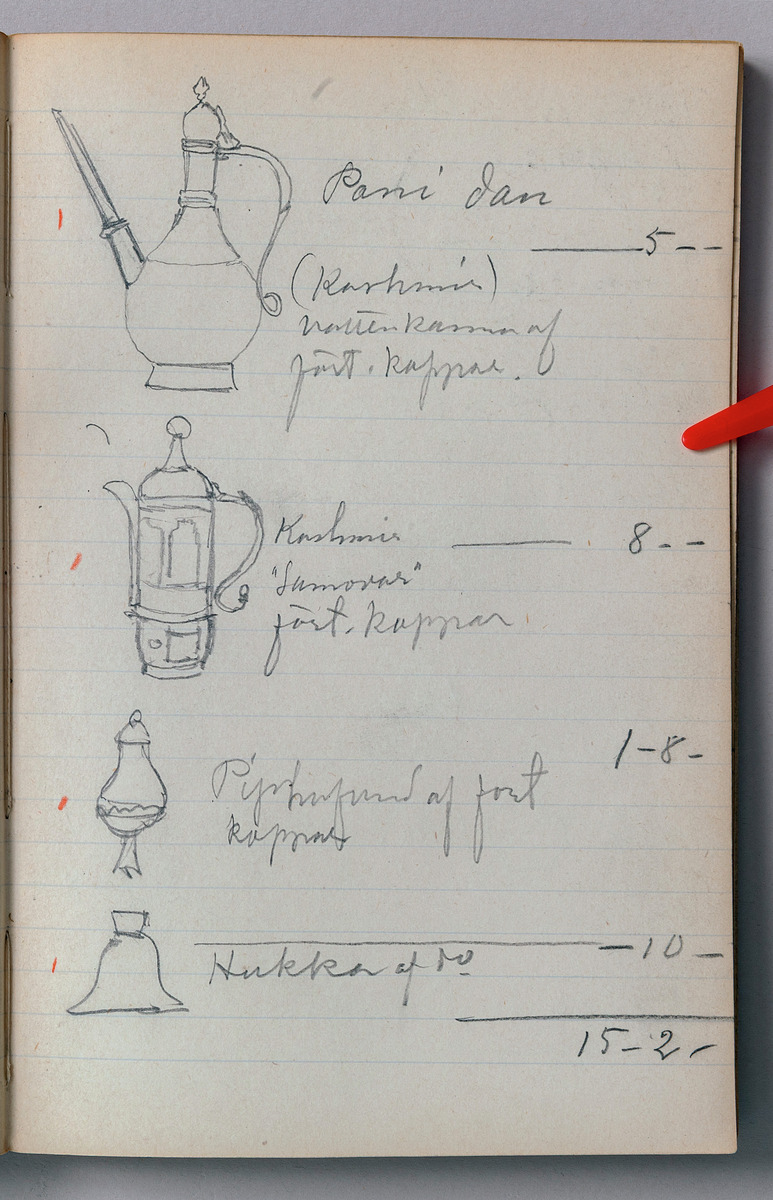 Pani dan
5 – –
(Kashmir)
vattenkanna af
fört. koppar.
Kashmir 8 - -
"Samovar"
fört. koppar
1 - 8 -
Piphufvud af fört
koppar
– 10 –
Hukka af do
15 - 2 -